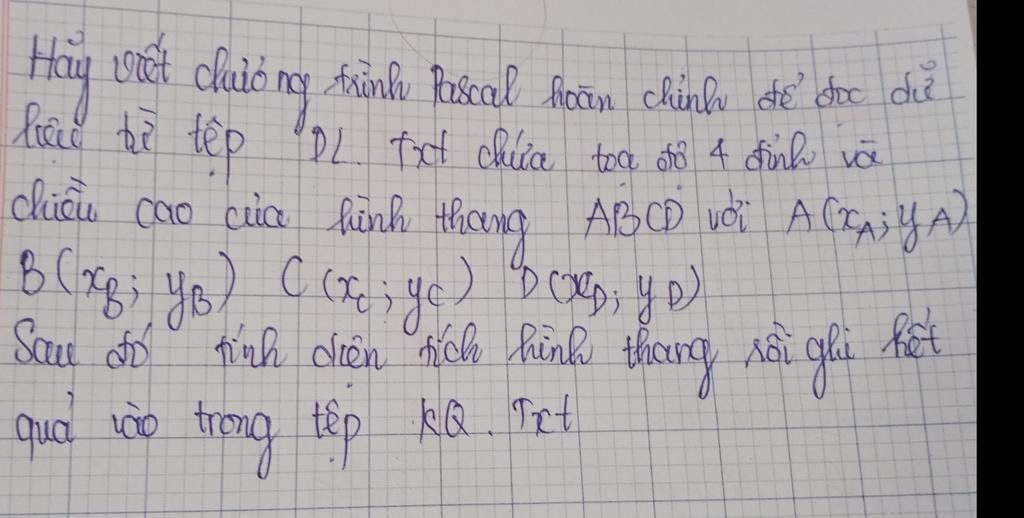 Hãy viết chương trình Pascal hoàn chỉnh để đọc dữ
liệu từ tệp DL. Txt chứa toạ độ 4 đỉnh và
chiều cao của hình thang ABCD với A(xA; yA)
B(xB; yB) C(xC; yC) D(xD; yD)
Sau đó tính diện tích hình thang rồi ghi kết
quả vào trong tệp KQ. Txt